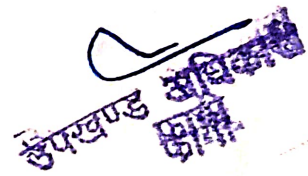 उपखण्ड अधिकारी
कामां